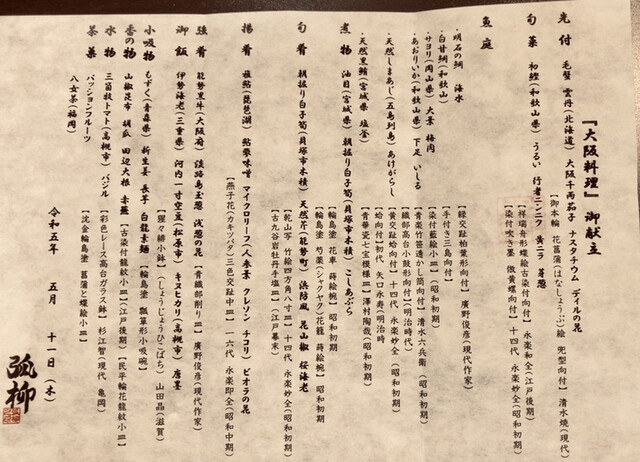 『大阪料理』御献立
先付 毛蟹 雲丹(北海道) 大阪千両茄子 ナスタチウム ディルの花
【御本輪 花菖蒲(はなしょうぶ)絵 兜型向付】清水焼(現代)
旬菜 初鰹(和歌山県) うるい 行者ニンニク 黄ニラ 芽葱
【祥瑞舟形蝶絵古染付向付】永楽和全(江戸後期)
【染付吹き墨 微黄蝶向付】十四代 永楽妙全(昭和初期)
魚庭
・明石の鯛 海水
【緑交趾柏葉形向付】廣野俊彦(現代作家)
・白甘鯛(和歌山)
【手付き三島向付】
・サヨリ(岡山県) 大葉 梅肉
【染付藍絵小皿】(昭和初期)
・あおりいか(和歌山県) 下足 いしる
【青楽竹笹透かし筒向付】清水六兵衛(昭和初期)
・天然しまあじ(五島列島) あけがらし
【織部高台小鼓形向付】(明治時代)
【黄交趾蛤向付】十四代 永楽妙全(昭和初期)
・天然黒鮪(宮城県 塩釜)
【蛤向付】初代 矢口永寿(明治時
【青華瓷七宝模様皿】澤村陶哉(昭和初期)
煮物 油目(宮城県) 朝掘り白子筍(貝塚市木積) こしあぶら
【輪島塗 花車 蒔絵椀】昭和初期
【輪島塗 芍薬(シャクヤク)花籠 蒔絵椀】昭和初期
旬肴 朝掘り白子筍(貝塚市木積) 天然芹(能勢町) 浜防風 花山椒 桜海老
【乾山写 竹絵四方角八寸皿】十四代 永楽妙全(昭和初期)
【古九谷岩牡丹手塩皿】(江戸幕末)
揚肴 稚鮎(琵琶湖) 鮎蓼味噌 マイクロリーフ(人参葉 クレソン チコリ) ビオラの花
【燕子花(カキツバタ)三色交趾中皿】一六代 永楽即全(昭和中期)
強肴 能勢黒牛(大阪府) 淡路島玉葱 浅葱の花
【青織部削り皿】廣野俊彦(現代作家)
御飯 伊勢海老(三重県) 河内一寸空豆(松原市) キヌヒカリ(高槻市) 唐墨
【猩々緋小鉢】(しょうじょうひこばち) 山田晶(滋賀)
小吸物 もずく(青森県) 新生姜 長芋 白龍素麺
【輪島塗 瓢箪形小吸碗】
香の物 山椒昆布 胡瓜 田辺大根 赤蕪
【古染付龍紋小皿】(江戸後期)【民平輪花龍紋小皿】
水物 三箇牧トマト(高槻市) バジル
【彩色レース高台ガラス鉢】杉江智(現代 亀岡)
パッションフルーツ
【沈金輪島塗 菖蒲と蝶絵小皿】
茶菓 八女茶(福岡)
令和五年 五月 十一日(木)
弧柳